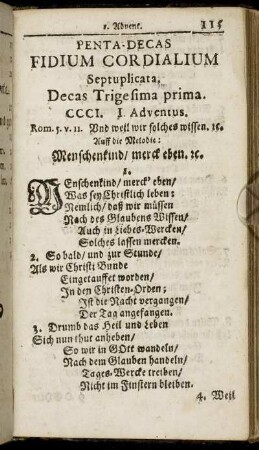 1. Advent. 115
PENTA-DECAS
FIDIUM CORDIALIUM
Septuplicata,
Decas Trigesima prima.
CCCI. I. Adventus.
Rom. 5. v. 11. Und weil wir solches wissen, ꝛc.
Auff die Melodie:
Menschenkind/ merck eben. ꝛc.
1.
MEnschenkind/ merck' eben/
Was sey Christlich leben;
Nemlich/ daß wir müssen
Nach des Glaubens Wissen/
Auch in Liebes-Wercken/
Solches lassen mercken.
2. So bald/ und zur Stunde/
Als wir Christi Bunde
Eingetauffet worden/
In den Christen-Orden;
Ist die Nacht vergangen/
Der Tag angefangen.
3. Drumb das Heil und Leben
Sich nun thut anheben/
So wir in GOtt wandeln/
Nach dem Glauben handeln/
Tages-Wercke treiben/
Nicht im Finstern bleiben.
4. Weil